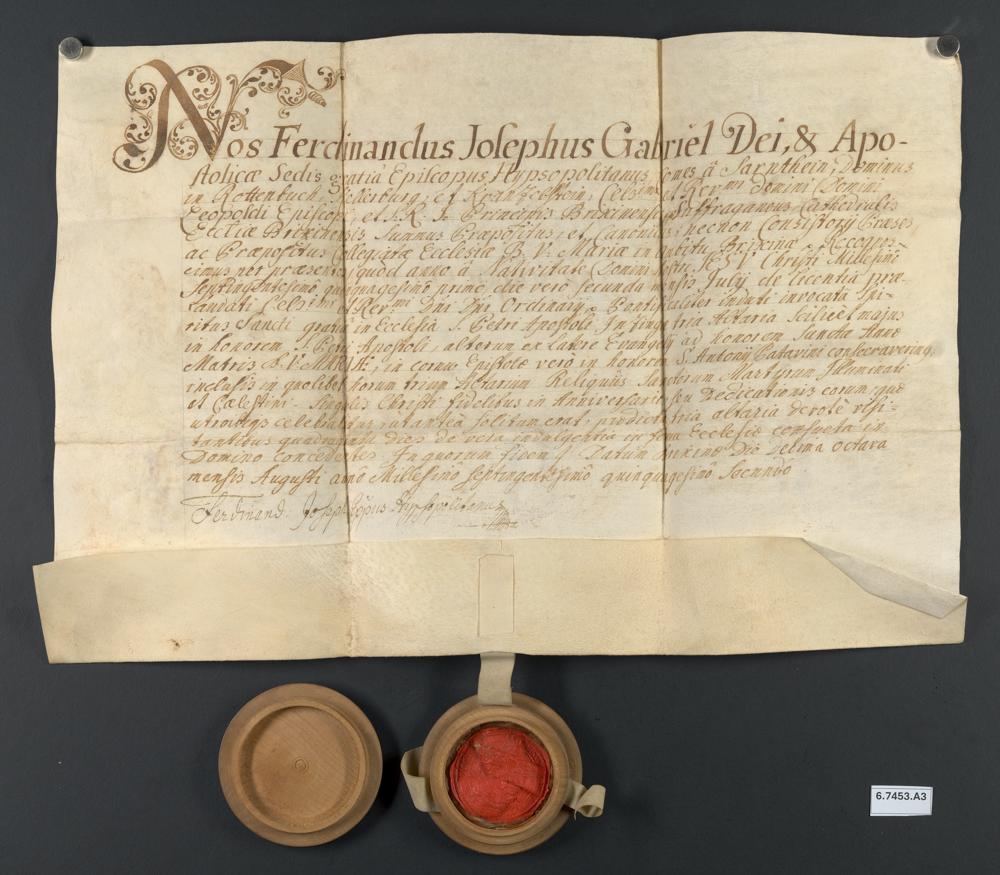 Nos Ferdinandus Josephus Gabriel Dei, & Apo-
stolicæ Sedis gratiâ Episcopus Hypsopolitanus Comes â Sarnthein, Dominus
in Rottenbuch, et Kranzelstein, Celsmi et Revmi Domini Domini
Leopoldi Episcopi, et S. R. I. Principis Brixinensis Suffraganeus Cathedralis
Eccliæ Brixinensis Summus Præpositus, et Canonicus necnon Consistorij Præses
ac Præpositus Collegiatæ Ecclesiæ B. V. Mariæ in ambitu Brixinæ. Recognos-
cimus per præsentes, quod anno â Nativitate Domini nostri Jesu Christi Millesimo
Septingentesimo quinquagesimo primo, die verò secunda mensis Julij de licentia præ-
laudati Celsmi et Revmi Dñi Dñi Ordinarij Pontificaliter induti invocatâ Spi-
ritus Sancti gratiâ in Ecclesiâ S. Petri Apostoli tria Altaria Scilicèt majus
in honorem S. Petri Apostoli, alterum ex latere Evangelij ad honorem Sanctæ Annæ
Matris B. V. MARIÆ, in cornu Epistolæ verò in honorem S. Antonij Patavini consecraverimus
inclusis in quolibet horum trium Altarium Reliquiis Sanctorum Martyrum Illuminati
et Cælestini. Singulis Christi fidelibus in Anniversario seu Dedicationis eorum, quæ
utrobique celebrantur solitum erat, prædicta tria altaria devotè visi-
tantibus quadraginta dies de vera indulgentia in forma Ecclesiæ consueta in
Domino concedentes. In quorum fidem Datum Brixinæ Die Decima octava
mensis Augusti anno Millesimo septingentesimo quinquagesimo Secundo
Ferdinand. Joseph Eppus Hypsopolitanus
6.7453.A3